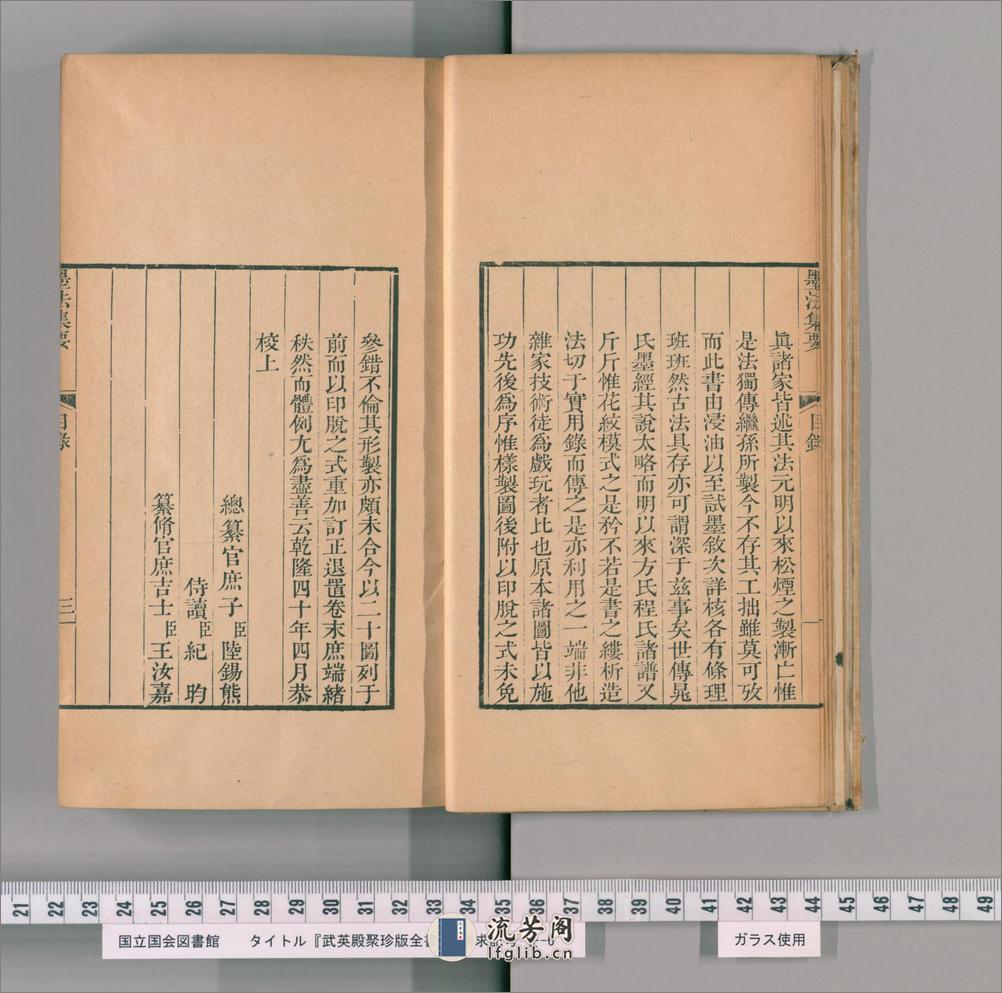 墨法集要
目錄
一
眞諸家皆述其法元明以來松煙之製漸亡惟
是法獨傳繼孫所製今不存其工拙雖莫可攷
而此書由浸油以至試墨敘次詳核各有條理
班班然古法具存亦可謂深于兹事矣世傳晁
氏墨經其說太略而明以來方氏程氏諸譜又
斤斤惟花紋模式之是矜不若是書之縷析造
法切于實用錄而傳之是亦利用之一端非他
雜家技術徒爲戲玩者比也原本諸圖皆以施
功先後爲序惟樣製圖後附以印脫之式未免
參錯不倫其形製亦頗未合今以二十圖列于
前而以印脫之式重加訂正退置卷末庶端緒
秩然而體例尤爲盡善云乾隆四十年四月恭
校上
總纂官庶子臣陸錫熊
侍讀臣紀昀
纂脩官庶吉士臣王汝嘉
墨法集要
目錄
21 22 23 24 25 26 27 28 29 30 31 32 33 34 35 36 37 38 39 40 41 42 43 44 45 46 47 48 49
国立国会図書館 タイトル『武英殿聚珍版全
ガラス使用
流芳阁
lfglib.cn